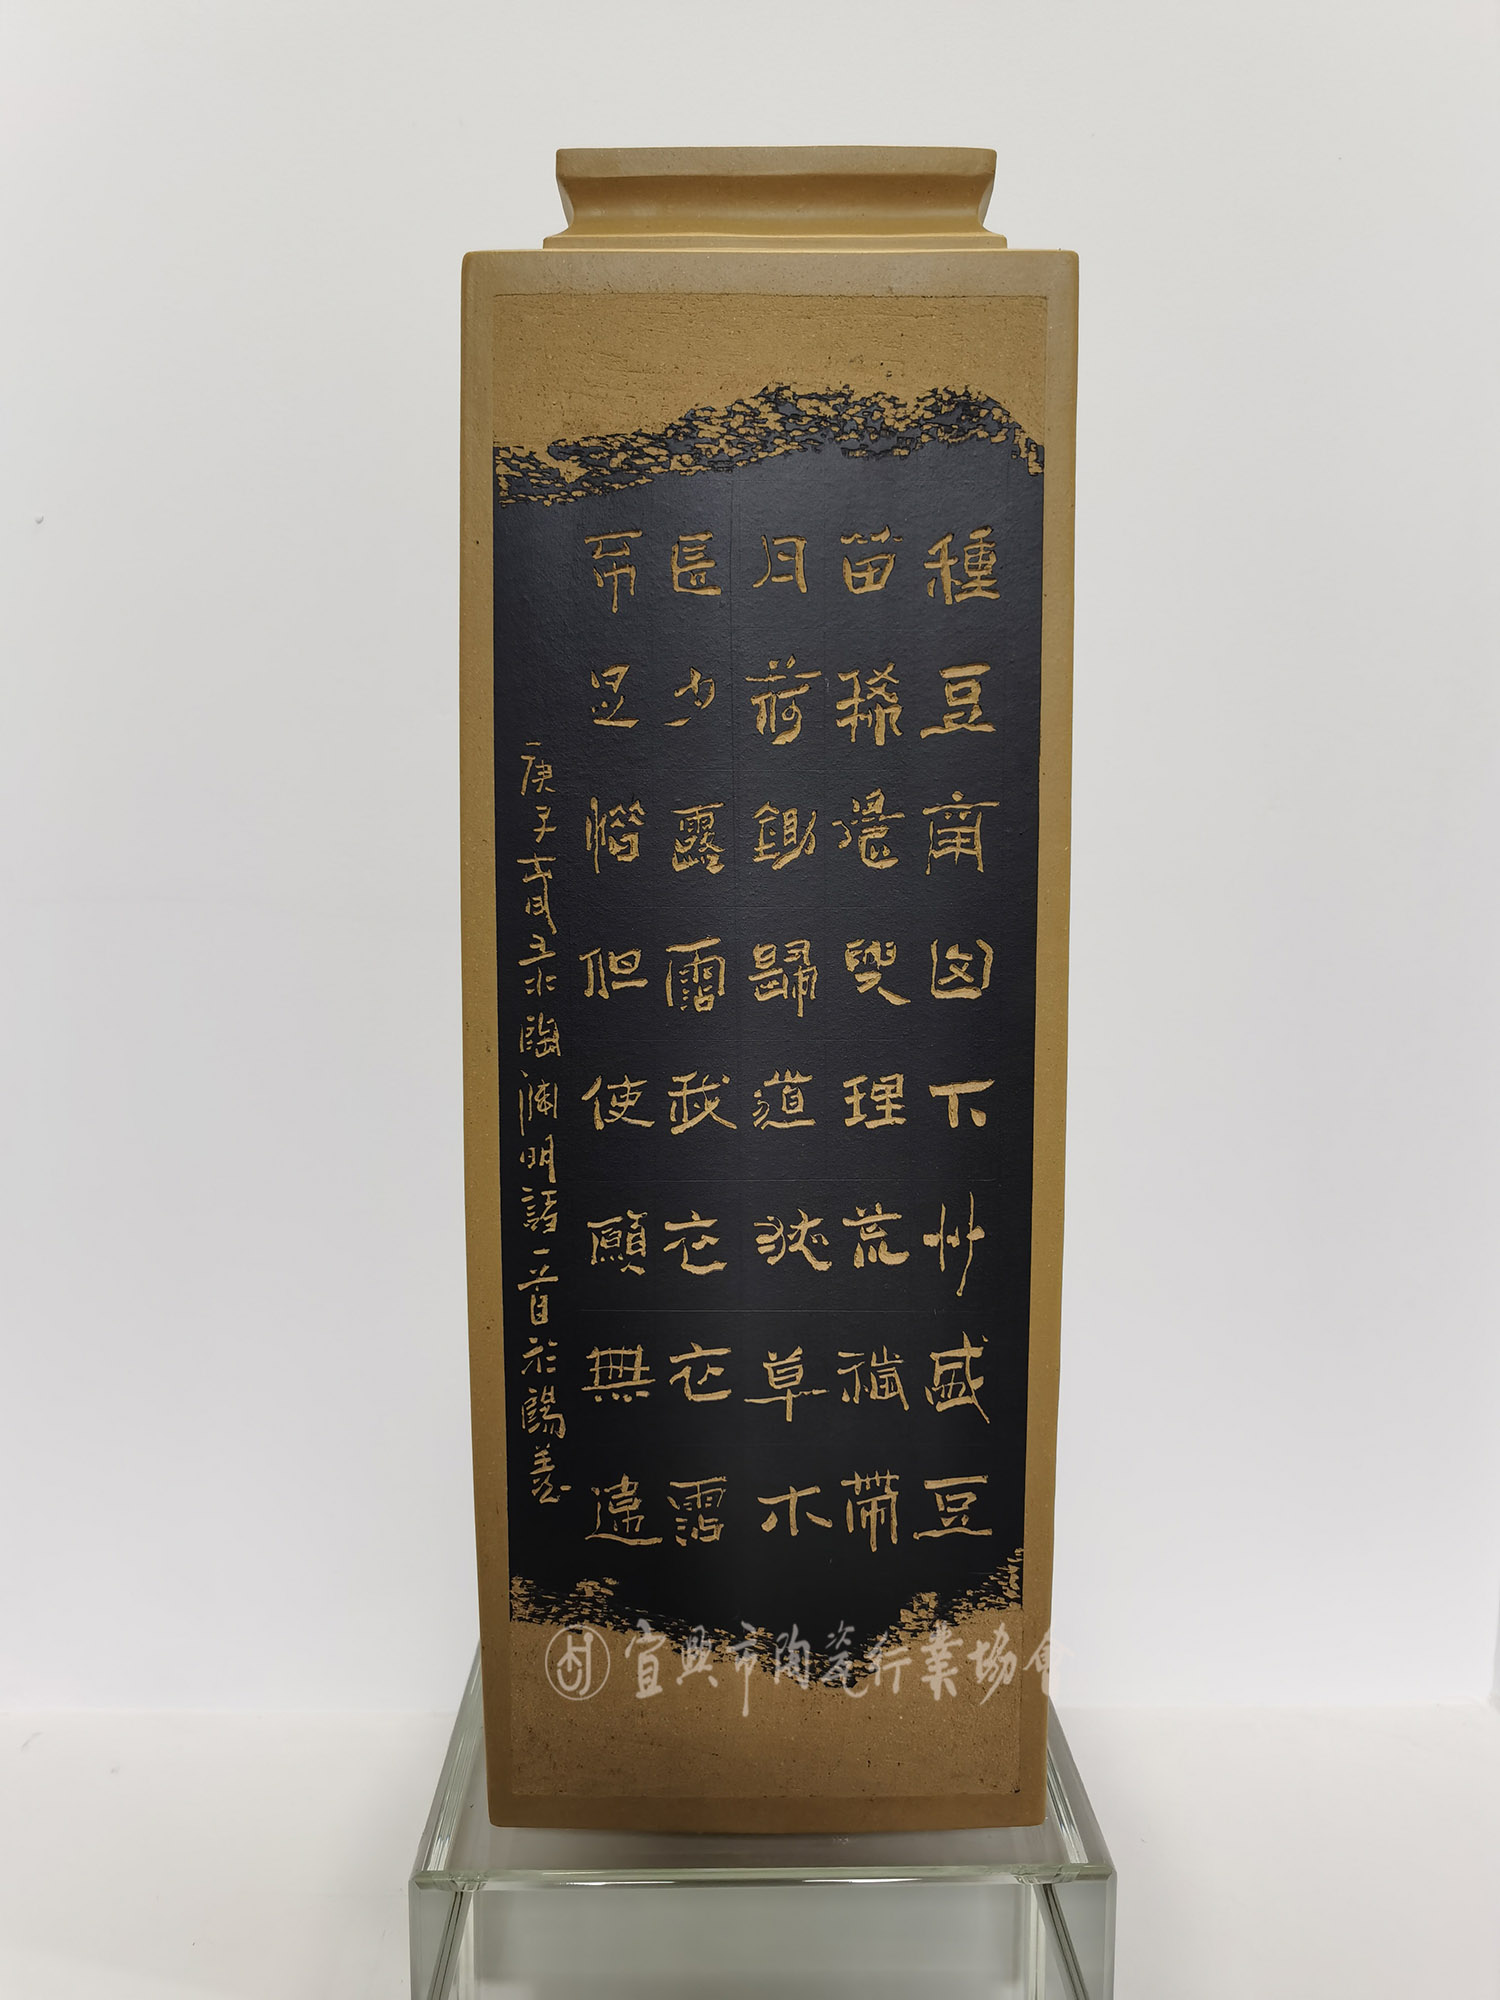 種豆南山下艸盛豆
苗稀晨興理荒穢帶
月荷鋤歸道狹草木
長夕露霑我衣衣霑
不足惜但使願無違
庚子 陶渊明詩一首於陽羨
宜興市陶瓷行業協會